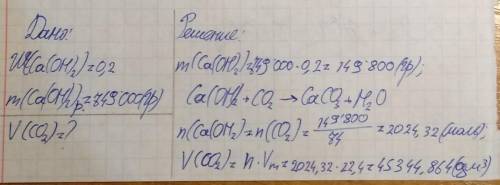 Дано:
W(Ca(OH)₂)=0,2
m(Ca(OH)₂)р=749000(гр)
V(CO₂)=?
Решение:
m(Ca(OH)₂)=749'000·0,2=149'800(гр);
Ca(OH)₂+CO₂→CaCO₃+H₂O
n(Ca(OH)₂)=n(CO₂)=149'800/74=2024,32(моль);
V(CO₂)=n·Vm=2024,32·22,4=45344,864(дм3)